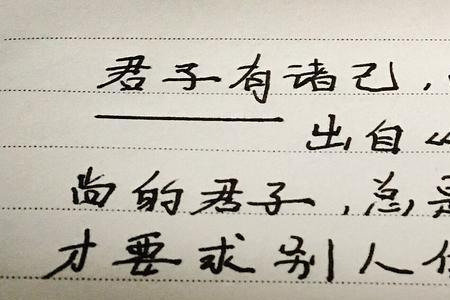 君子有诸己，
出自《
尚的君子，总是
才要求别人